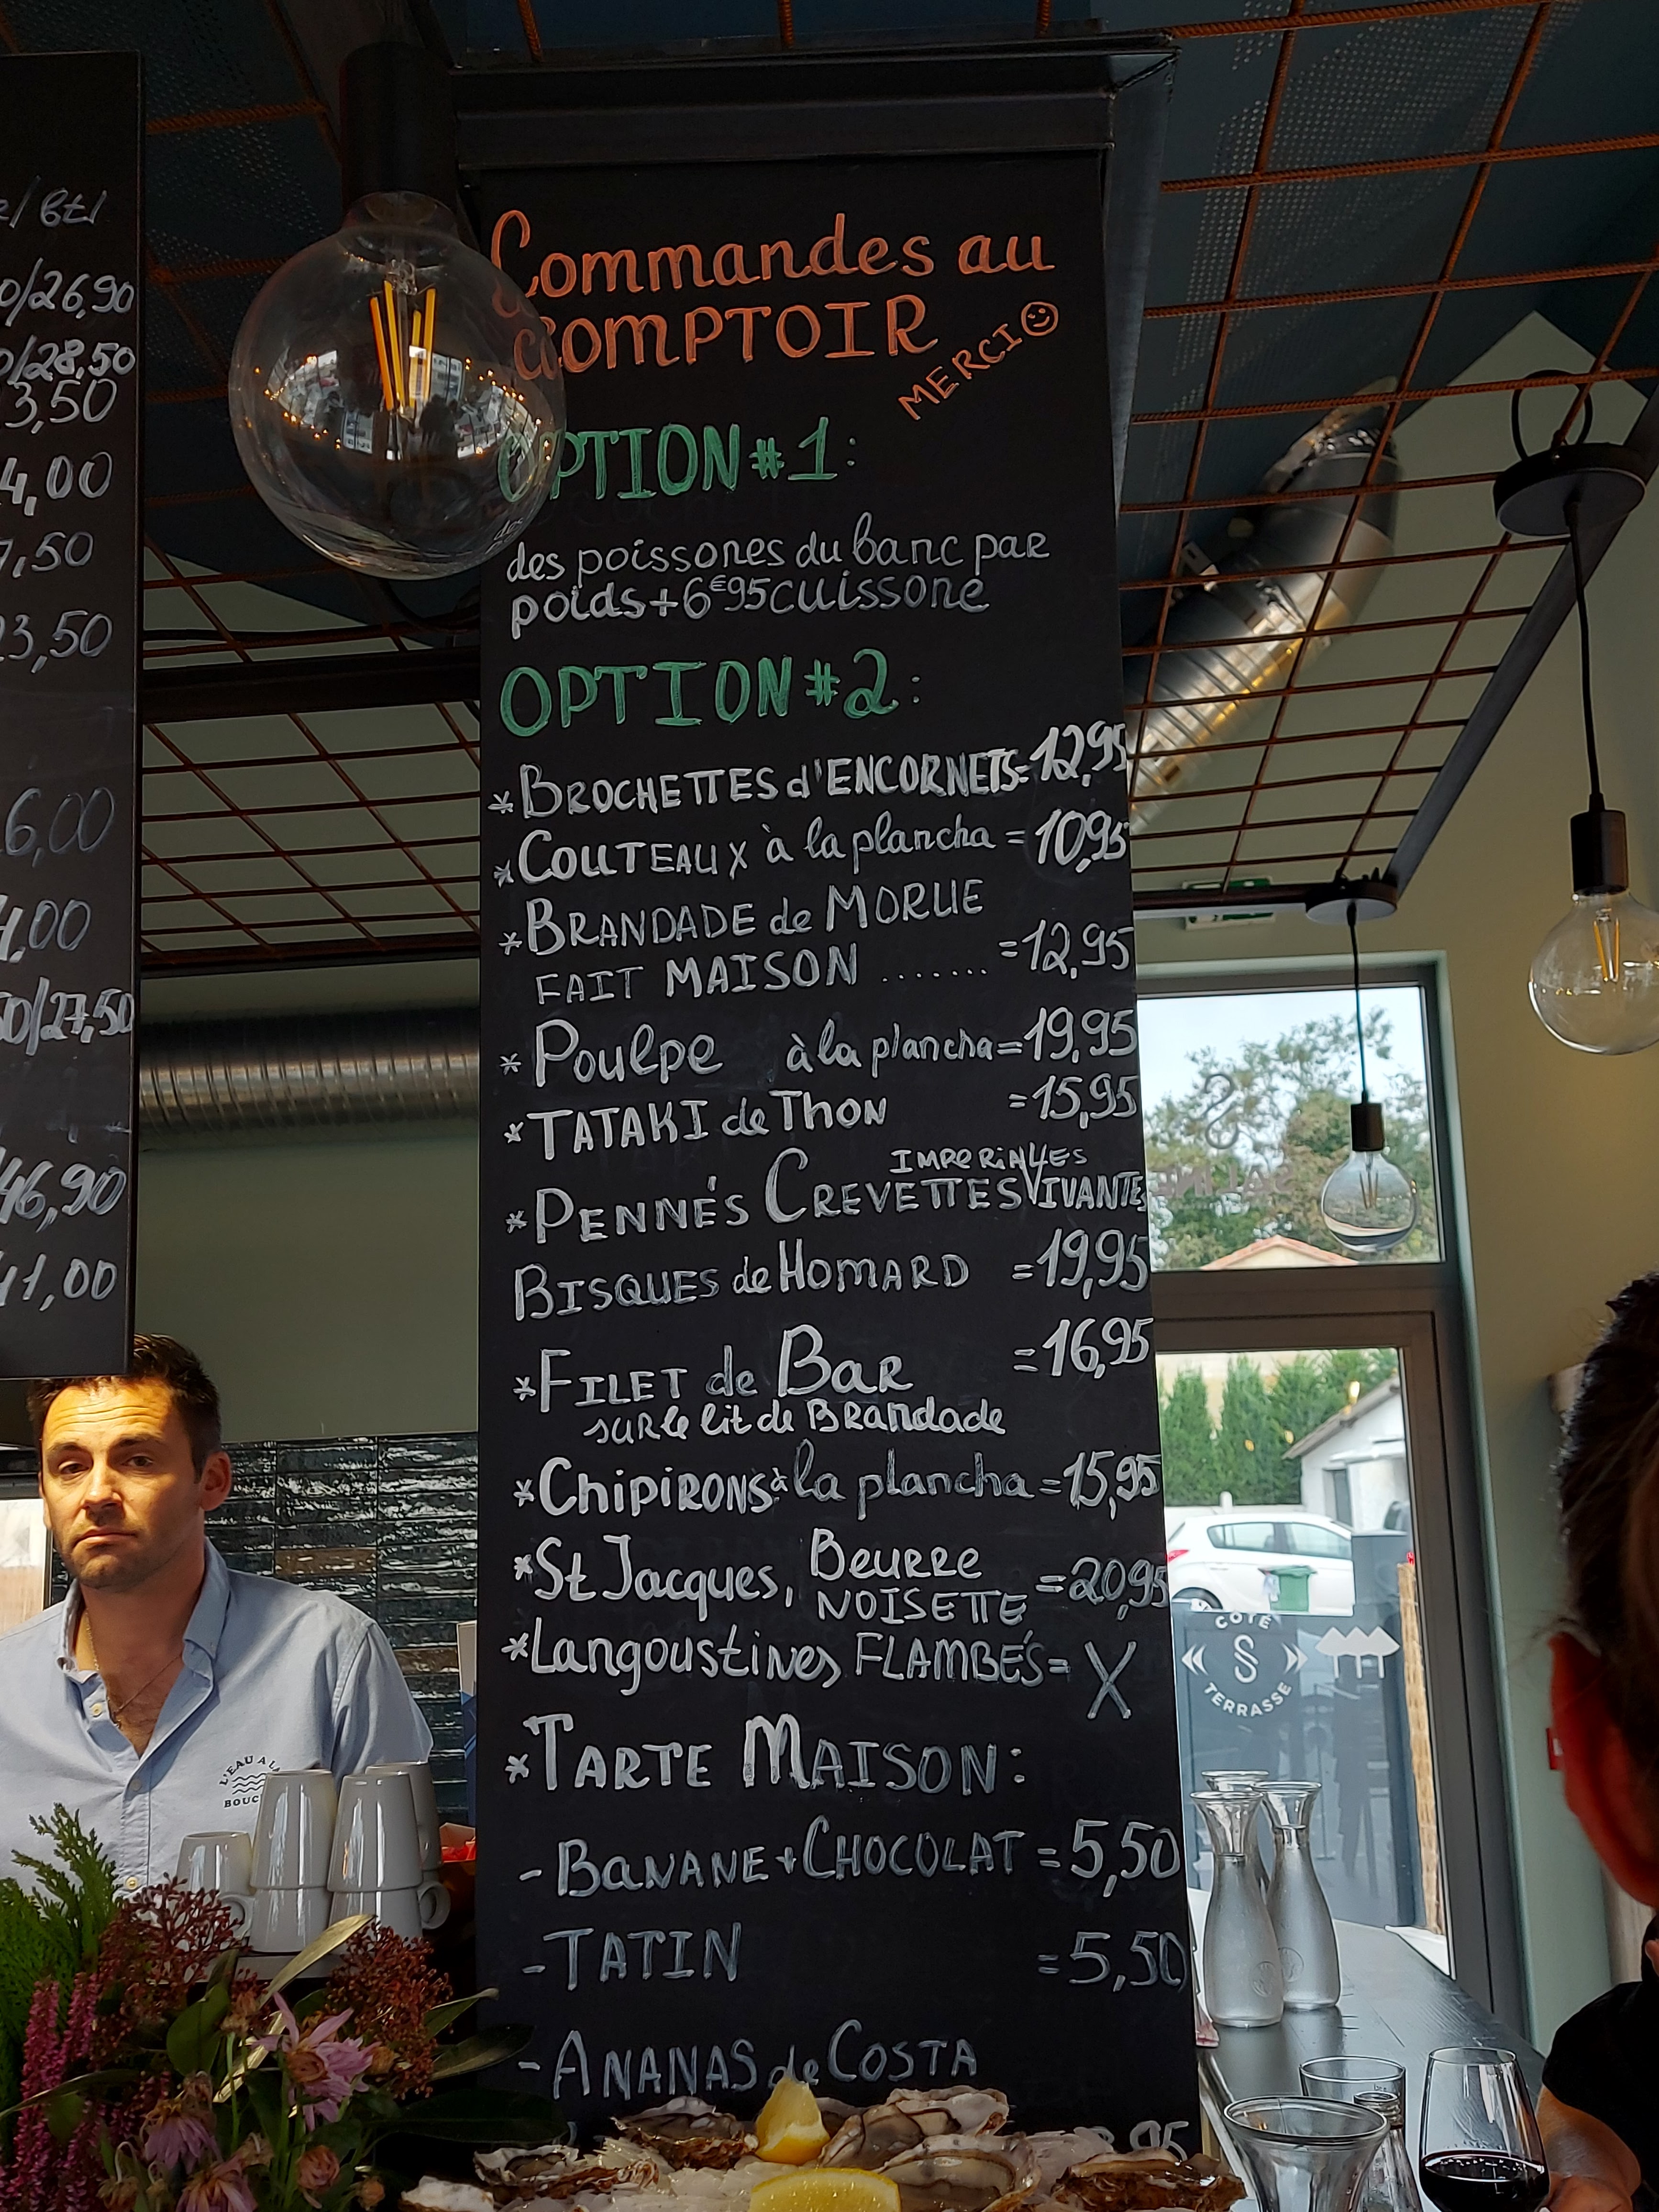 Commandes au
COMPTOIR
MERCI
OPTION #1:
des poissones du banc par
poids + 6€95 cuissone
OPTION #2:
* BROCHETTES d'ENCORNETS = 12,95
* COUTEAUX à la plancha = 10,95
* BRANDADE de MORUE
FAIT MAISON ....... = 12,95
* Poulpe à la plancha = 19,95
* TATAKI de Thon = 15,95
IMPERIALES
* PENNÉS CREVETTES VIVANTES
BISQUES de HOMARD = 19,95
* FILET de BAR = 16,95
sur le lit de Brandade
* Chipirons à la plancha = 15,95
* St Jacques, Beurre
NOISETTE = 20,95
* Langoustines FLAMBÉS = X
* TARTE MAISON:
- BANANE + CHOCOLAT = 5,50
- TATIN = 5,50
- ANANAS de COSTA
95
btl
/26,90
/28,50
3,50
4,00
7,50
3,50
6,00
,00
/27,50
46,90
41,00
L'EAU A LA
BOUC
CÔTÉ
S
TERRASSE